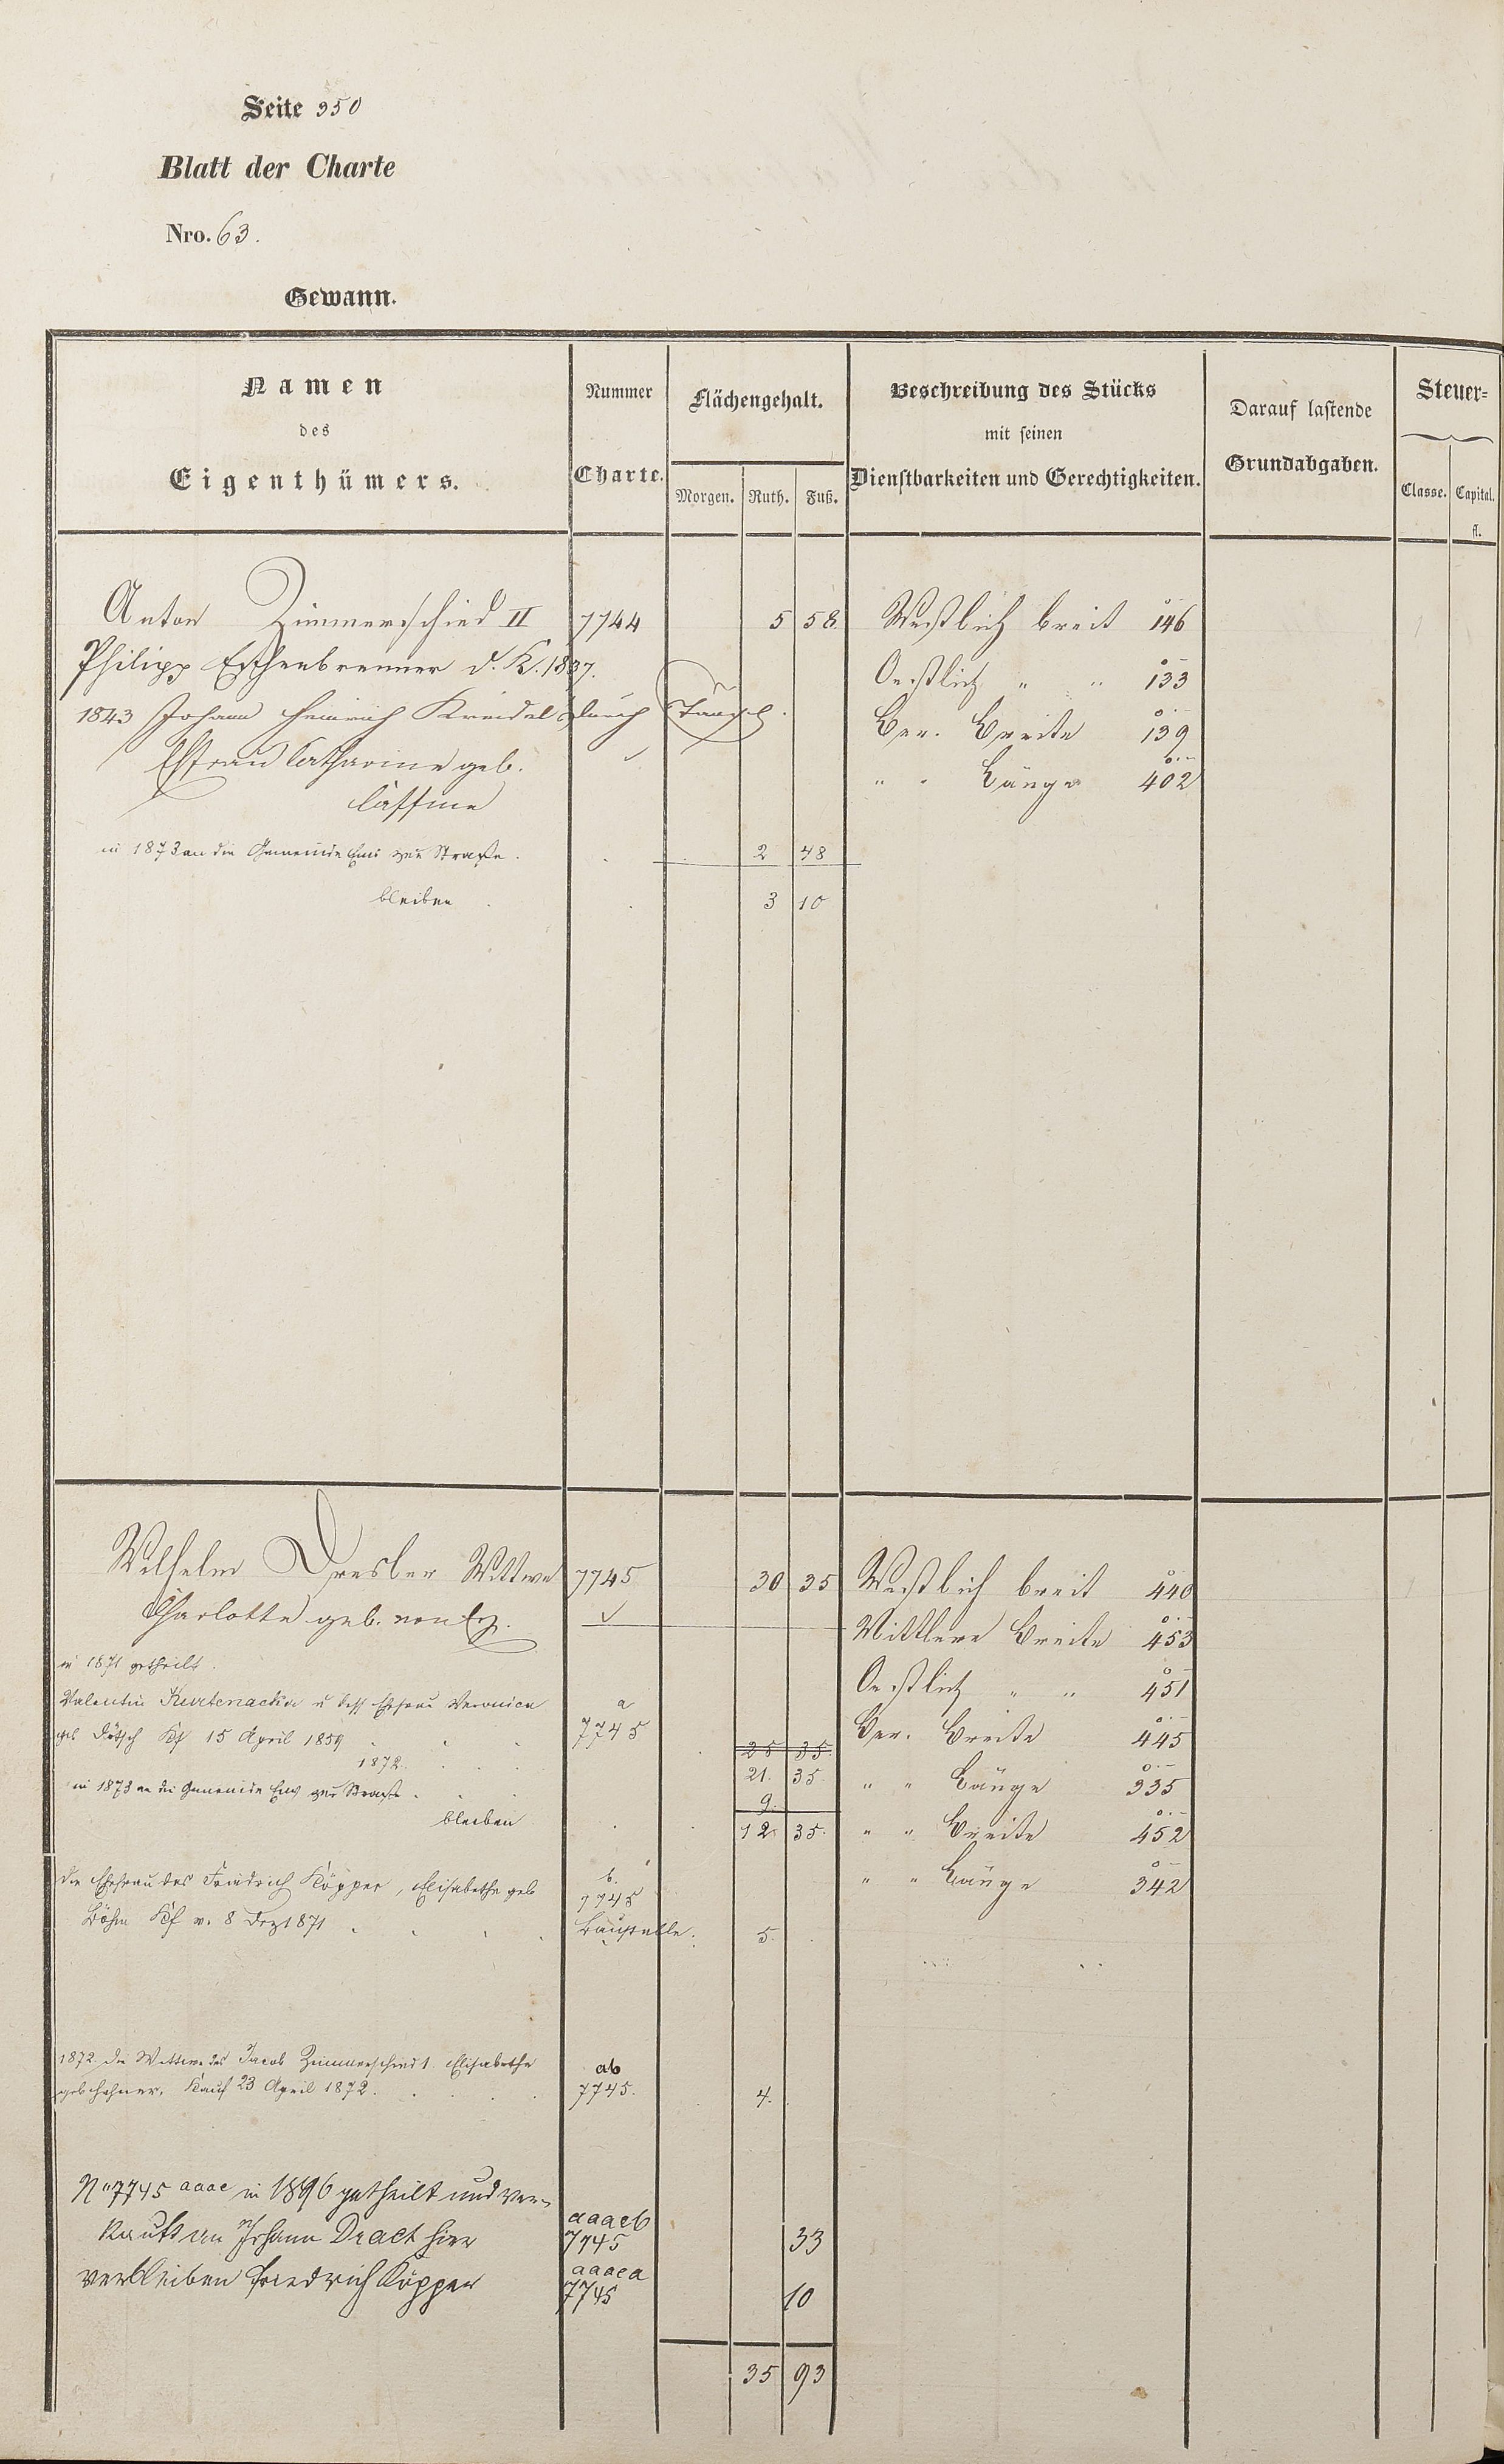 Seite 350
Blatt der Charte
Nro. 63.
Gewann.
Namen
des
Eigenthümers.
Nummer
Charte.
Flächengehalt.
Morgen. Ruth. Fuß.
Beschreibung des Stücks
mit seinen
Dienstbarkeiten und Gerechtigkeiten.
Darauf lastende
Grundabgaben.
Steuer-
Classe. Capital.
fl.
Anton Zimmerschied II 7744 5 58 Westlich breit 146
Philipp d. K. 1837. Oestlich " " 133
1843 Johann Heinrich Kreidel durch Tausch. Ber. Breite 139
Ehfrau Catharine geb. " " Länge 402
in 1873 an die Gemeinde Ems zur Straße. 2 48
bleiben 3 10
Wilhelm Dresler Wittwe 7745 30 35 Westlich breit 440
Charlotte geb. Mittlere Breite 453
in 1871 getheilt. Oestlich " " 451
Valentin u dess Ehefrau Veronica a
geb Dötsch Kf 15 April 1859 7745 25 35 Ber. Breite 445
1872. 21. 35 " " Länge 335
in 1873 an die Gemeinde Ems zur Straße. 9.
bleiben 12. 35. " " Breite 452
die Ehefrau des Friedrich Köpper, Elisabethe geb b. " " Länge 342
7745
Böhm Kf v. 8 Dez 1871 Baustelle. 5.
1872 die Wittwe des Jacob Zimmerschied 1. Elisabethe ab
geb Kauf 23 April 1872. 7745. 4.
No 7745 aaac in 1896 getheilt und ver-
kauft an Johann hier aaacb
7745 33
verbleiben Friedrich Köpper aaaca
7745 10
35 93